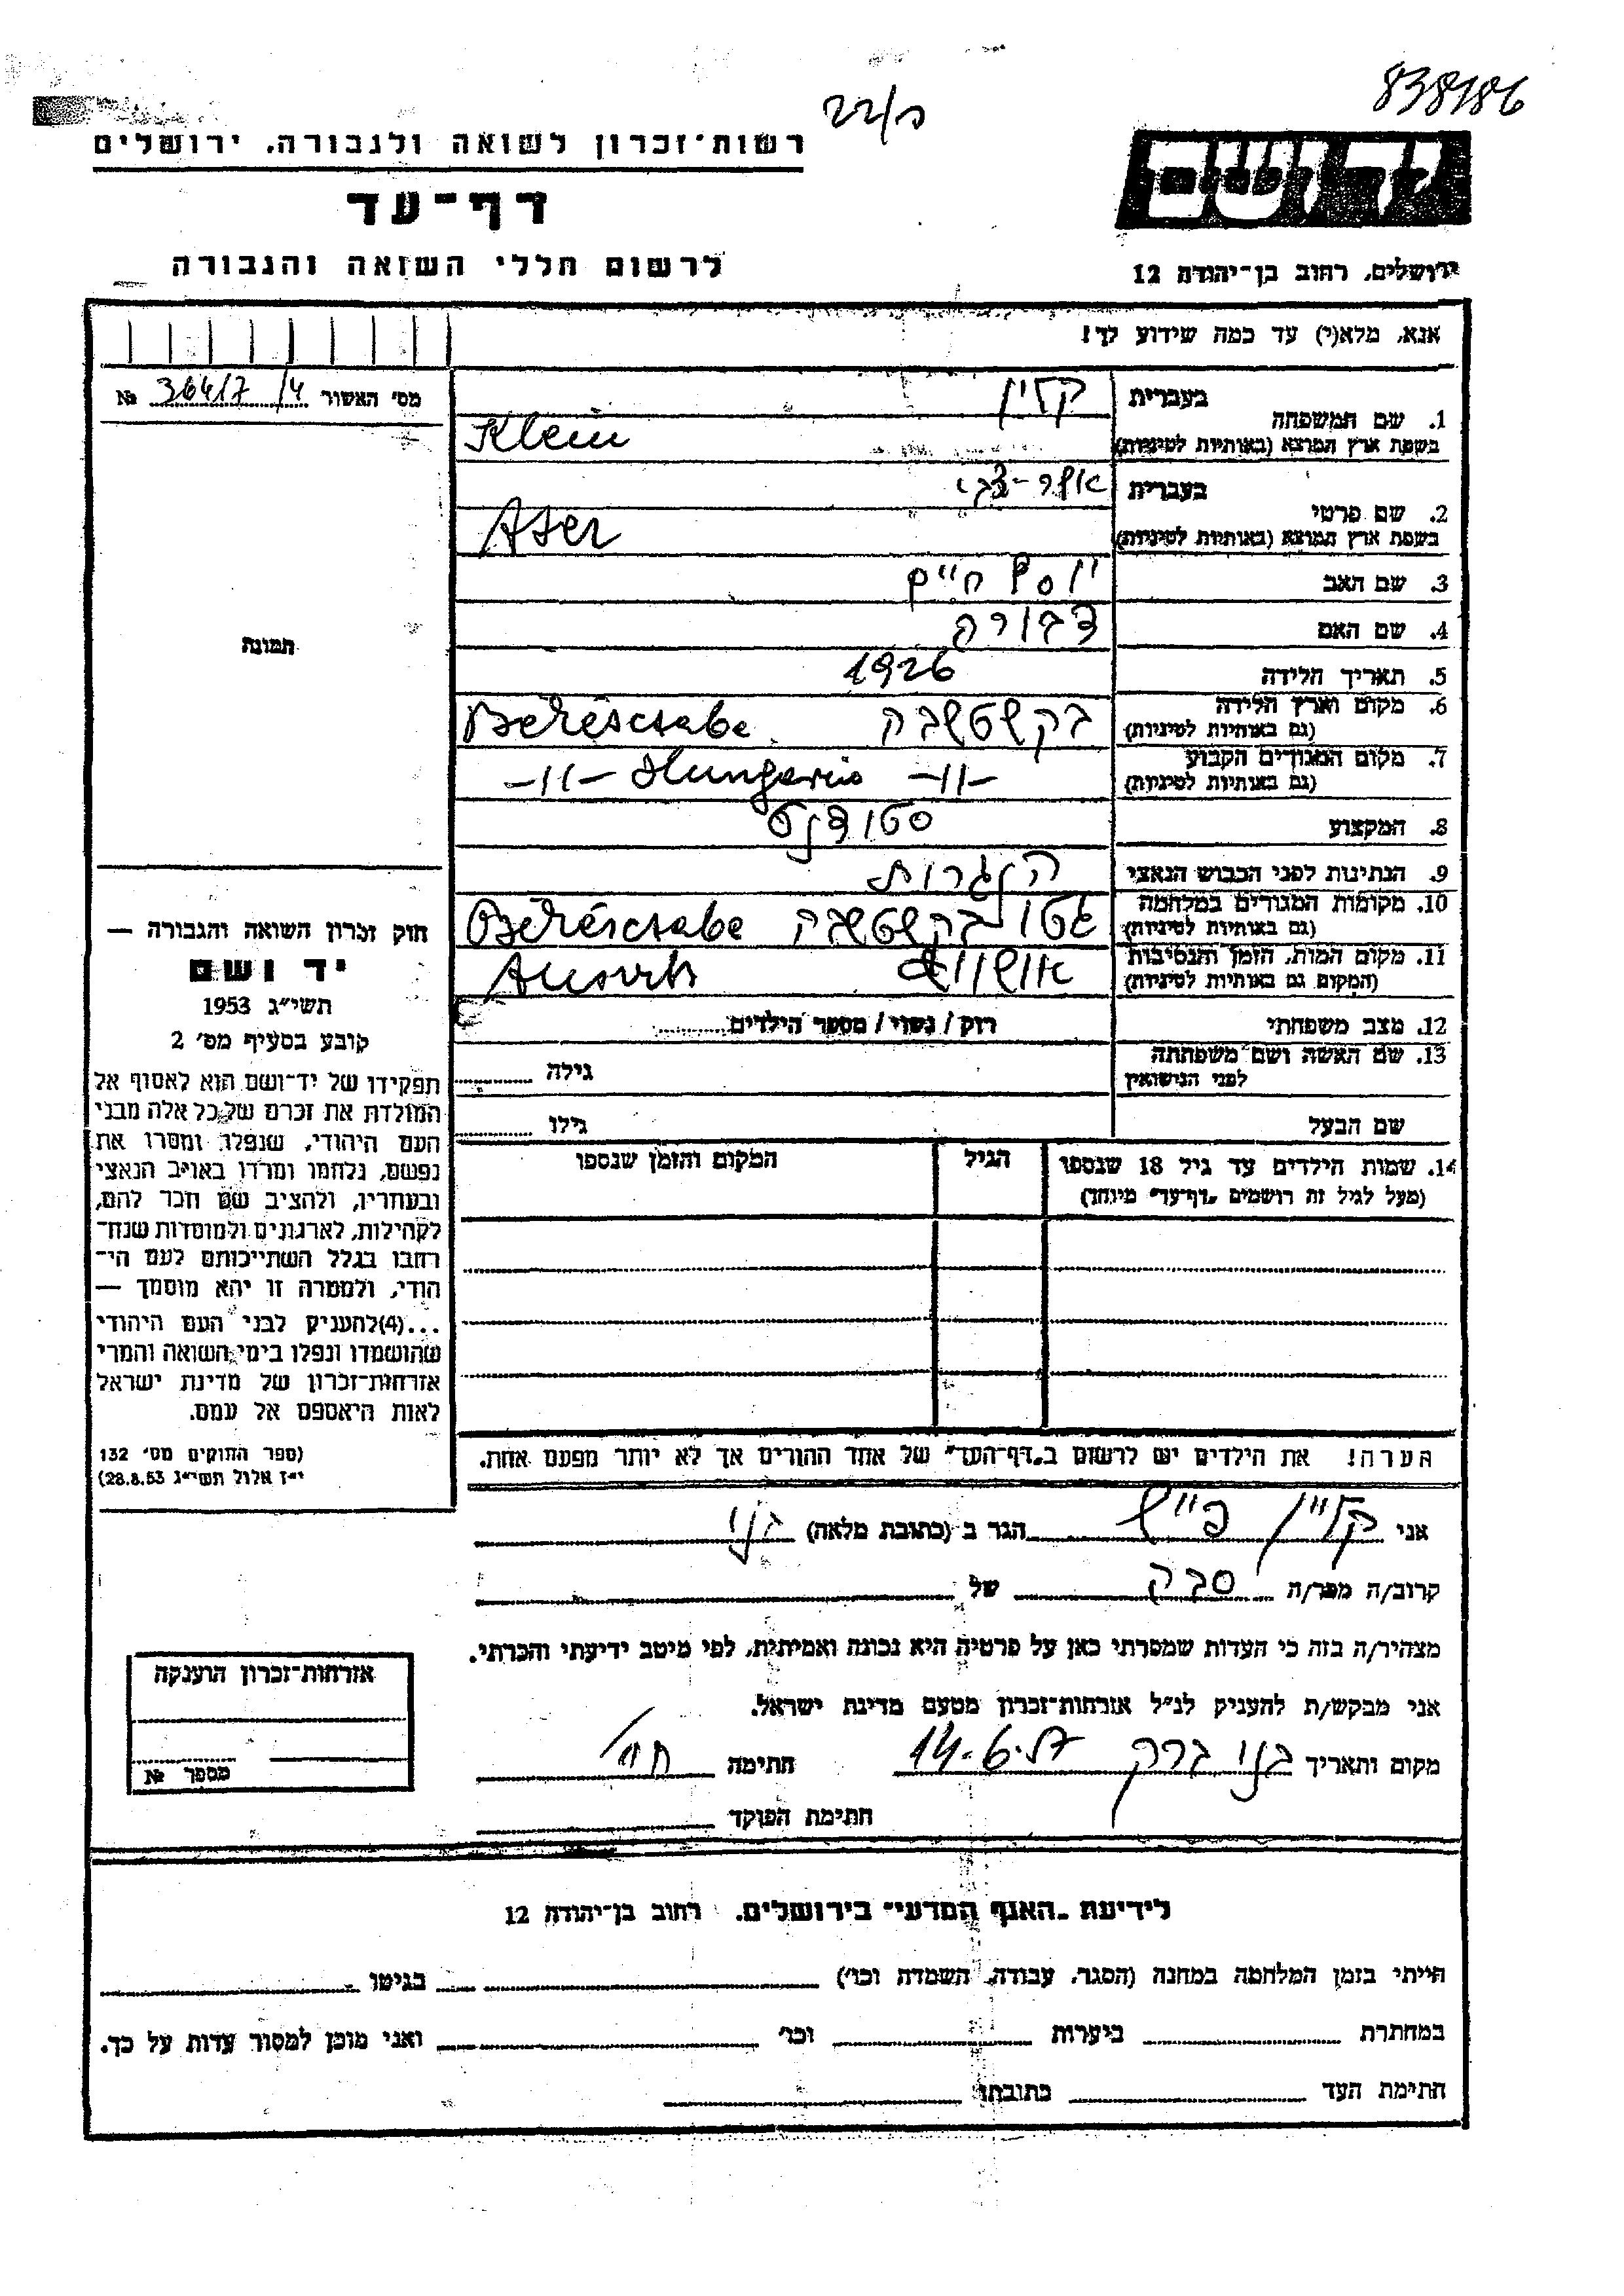 838/86
22/ת
רשות־זכרון לשואה ולגבורה, ירושלים
יד ושם
דף־עד
לרשום חללי השואה והגבורה
ירושלים, רחוב בן־יהודה 12
אנא, מלא(י) עד כמה שידוע לך!
מס׳ האשור 364/7 /4 №
תמונה
1. שם המשפחה
בעברית קליין
בשפת ארץ המוצא (באותיות לטיניות) Klein
2. שם פרטי
בעברית אשר-צבי
בשפת ארץ המוצא (באותיות לטיניות) Aser
3. שם האב יוסף חיים
4. שם האם דבורה
5. תאריך הלידה 1926
6. מקום וארץ הלידה בקשטשבה Békéscsabe
(גם באותיות לטיניות)
7. מקום המגורים הקבוע -11- Hungaria -11-
(גם באותיות לטיניות)
8. המקצוע סטודנט
9. הנתינות לפני הכבוש הנאצי הונגרית
10. מקומות המגורים במלחמה גטו בקשטשבה Békéscsabe
(גם באותיות לטיניות)
11. מקום המות, הזמן והנסיבות אושוויץ
(המקום גם באותיות לטיניות)
12. מצב משפחתי רווק / נשוי / מספר הילדים
13. שם האשה ושם משפחתה גילה
לפני הנישואין
שם הבעל גילו
14. שמות הילדים עד גיל 18 שנספו הגיל המקום והזמן שנספו
(מעל לגיל זה רושמים „דף־עד” מיוחד)
הערה! את הילדים יש לרשום ב„דף־העד” של אחד ההורים אך לא יותר מפעם אחת.
חוק זכרון השואה והגבורה —
יד ושם
תשי״ג 1953
קובע בסעיף מס׳ 2
תפקידו של יד־ושם הוא לאסוף אל
המולדת את זכרם של כל אלה מבני
העם היהודי, שנפלו ומסרו את
נפשם, נלחמו ומרדו באויב הנאצי
ובעוזריו, ולהציב שם וזכר להם,
לקהילות, לארגונים ולמוסדות שנח־
רבו בגלל השתייכותם לעם הי־
הודי, ולמטרה זו יהא מוסמך —
...(4)להעניק לבני העם היהודי
שהושמדו ונפלו בימי השואה והמרי
אזרחות־זכרון של מדינת ישראל
לאות היאספם אל עמם.
(ספר החוקים מס׳ 132
י״ז אלול תשי״ג 28.8.53)
אני קליין פייש הגר ב (כתובת מלאה) בני
קרוב/ה מכר/ה סבק של
מצהיר/ה בזה כי העדות שמסרתי כאן על פרטיה היא נכונה ואמיתית, לפי מיטב ידיעתי והכרתי.
אני מבקש/ת להעניק לנ״ל אזרחות־זכרון מטעם מדינת ישראל.
מקום ותאריך בני ברק 14.6.57 חתימה
חתימת הפוקד
אזרחות־זכרון הוענקה
מספר №
לידיעת „האגף המדעי” בירושלים, רחוב בן־יהודה 12
הייתי בזמן המלחמה במחנה (הסגר, עבודה, השמדה וכו׳) בגיטו
במחתרת ביערות וכו׳ ואני מוכן למסור עדות על כך.
חתימת העד כתובתו